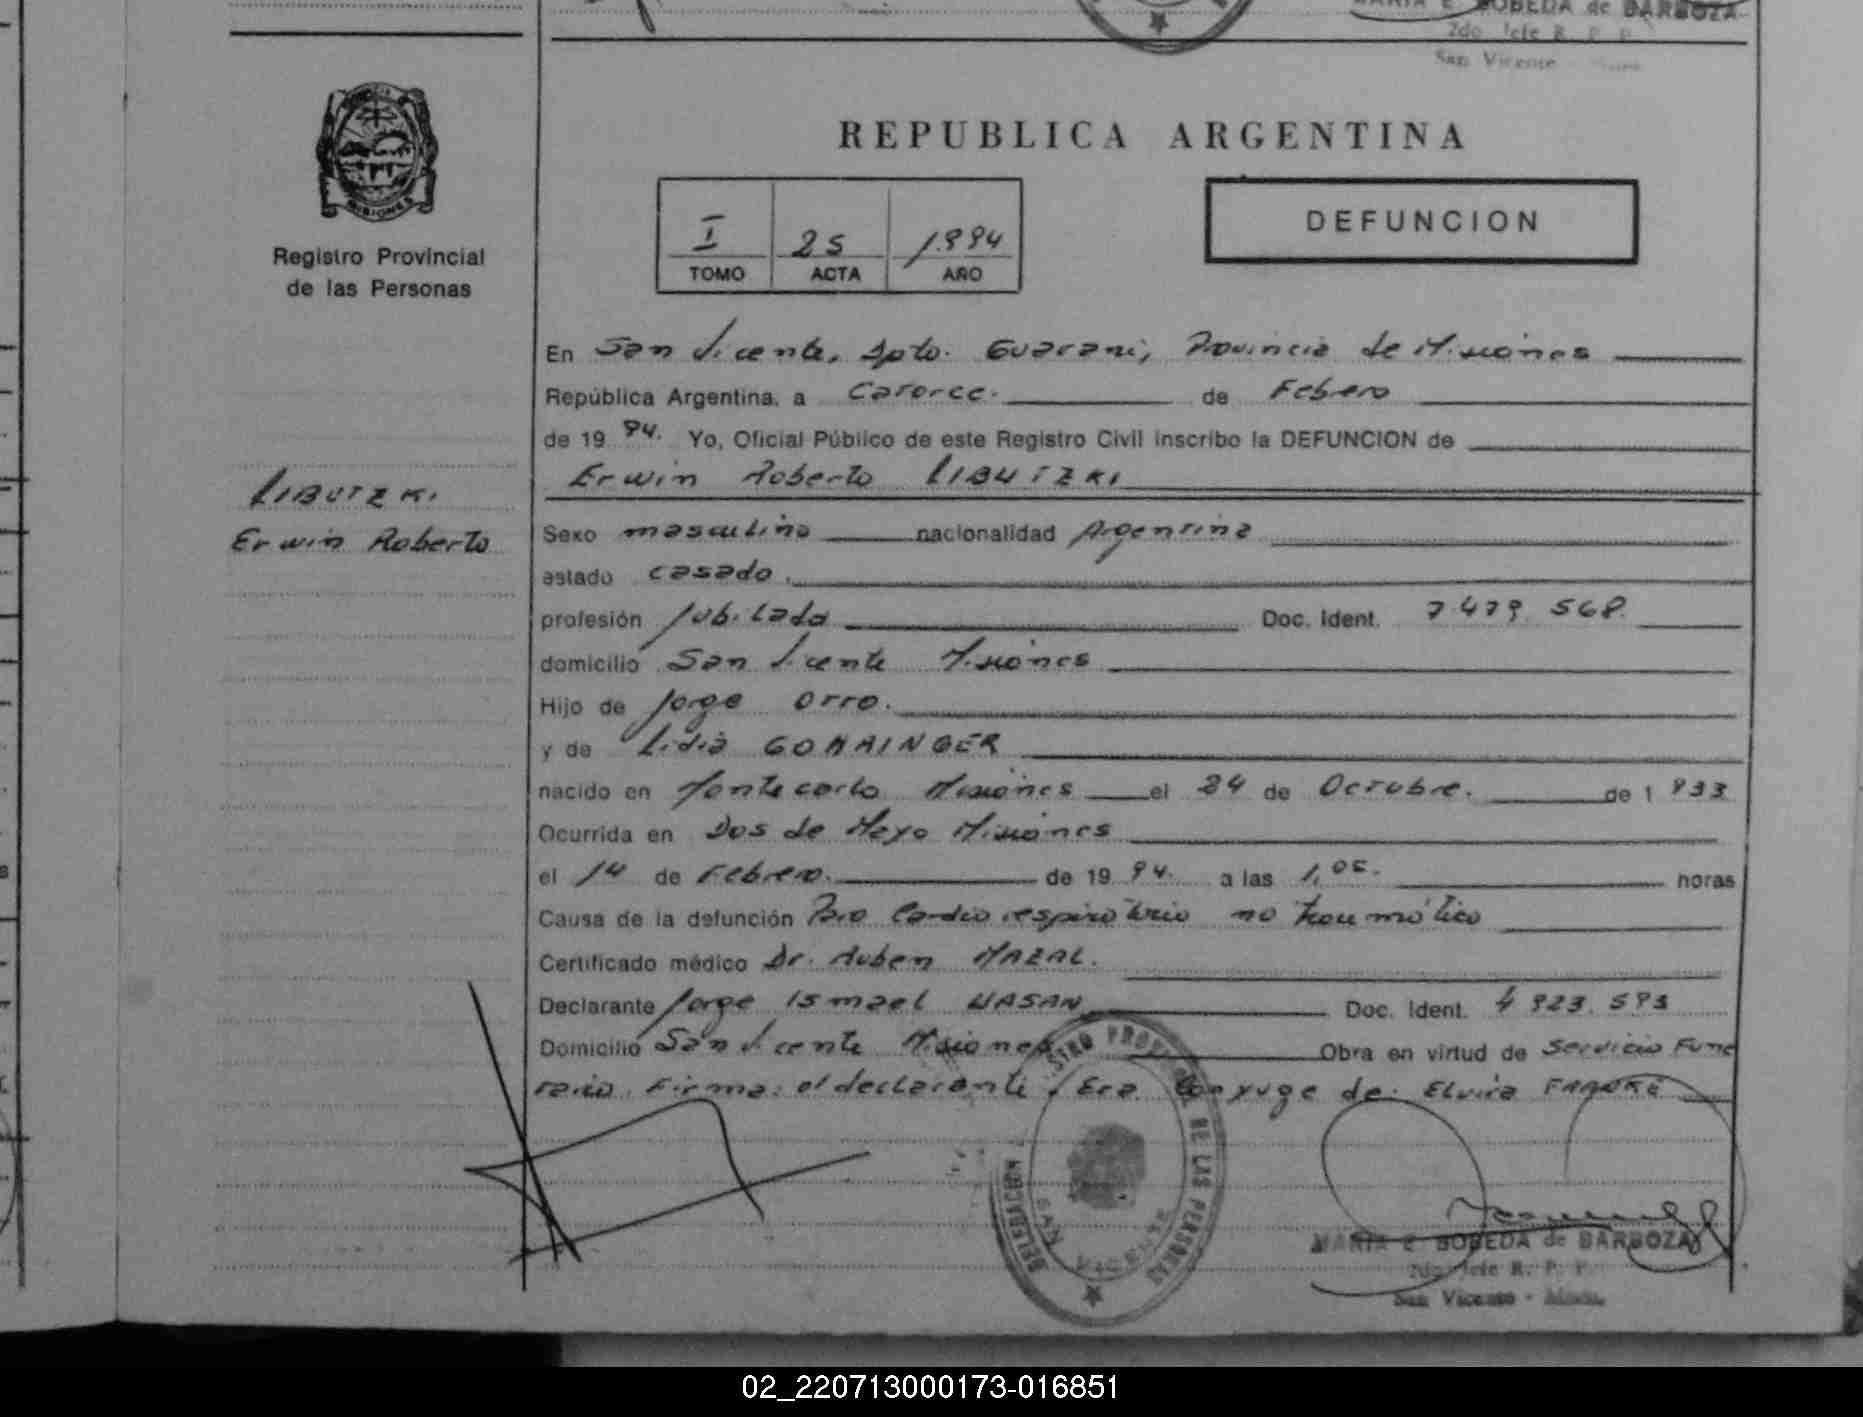 MARIA E BOBEDA de BARBOZA
2do Jefe R. P. P.
San Vicente
MISIONES
Registro Provincial
de las Personas
REPUBLICA ARGENTINA
I 25 1994
TOMO ACTA AÑO
DEFUNCION
En San Vicente, Dpto. Guarani, Provincia de Misiones
República Argentina, a Catorce. de Febrero
de 1994. Yo, Oficial Público de este Registro Civil inscribo la DEFUNCION de
Erwin Roberto LIBUTZKI
LIBUTZKI
Erwin Roberto
Sexo masculino nacionalidad Argentina
estado casado.
profesión Jubilado Doc. Ident. 7.479.568.
domicilio San Vicente Misiones
Hijo de Jorge Otto.
y de Lidia
nacido en Montecarlo Misiones el 24 de Octubre. de 1933
Ocurrida en Dos de Mayo Misiones
el 14 de Febrero. de 1994. a las 1,05. horas
Causa de la defunción Paro Cardio respiratorio no traumático
Certificado médico Dr. Ruben MAZAL.
Declarante Jorge Ismael HASAN Doc. Ident. 4.923.593
Domicilio San Vicente Misiones Obra en virtud de Servicio Fune
rario. Firma: el declarante. Era Conyuge de: Elvira FRANKE
REGISTRO PROVINCIAL DE LAS PERSONAS
DELEGACION
SAN VICENTE
MARIA E BOBEDA de BARBOZA
2do Jefe R. P. P.
San Vicente - Mnes.
02_220713000173-016851